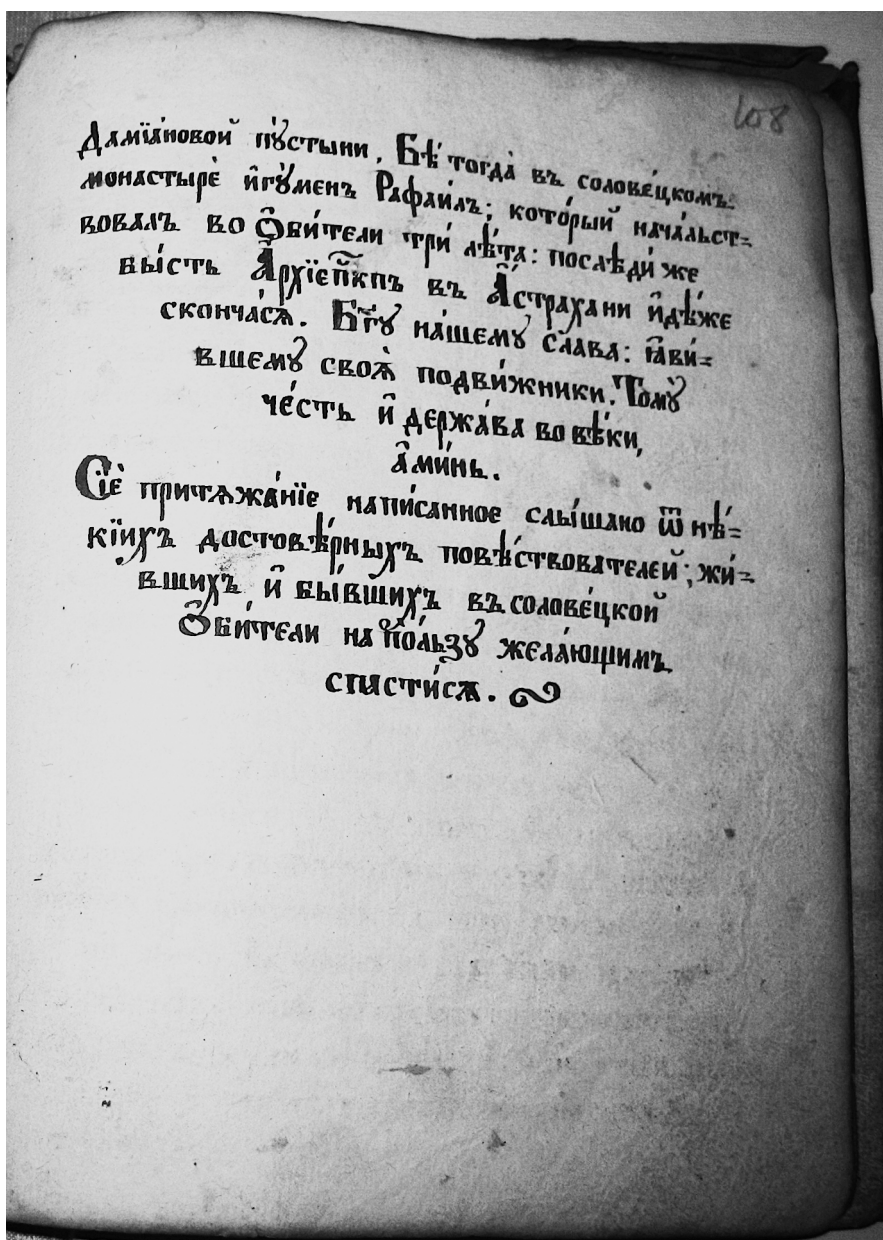 108
Дамїа́новой пꙋ́стыни. Бѣ́ тогда̀ въ солове́цкомъ
монастырѐ и҆гꙋ́менъ Рафаи́лъ; кото́рый нача́льст=
вовалъ во ѻ҆би́тели три́ лѣ́та: послѣди́ же
бы́сть А҆рхїепⷭ҇кпъ въ А҆́страхани и҆дѣ́же
сконча́сѧ. Бг҃ꙋ на́шемꙋ сла́ва: ꙗ҆ви́=
вшемꙋ своѧ̀ подви́жники. Томꙋ̀
че́сть и҆ держа́ва во вѣ́ки,
а҆ми́нь.
Сїѐ притѧжа́нїе напи́санное слы́шано ѿ нѣ́=
кїихъ достовѣ́рныхъ повѣ́ствователей; жи́=
вшихъ и҆ бы́вшихъ въ солове́цкой
ѻ҆би́тели на по́льзꙋ жела́ющимъ
спасти́сѧ.